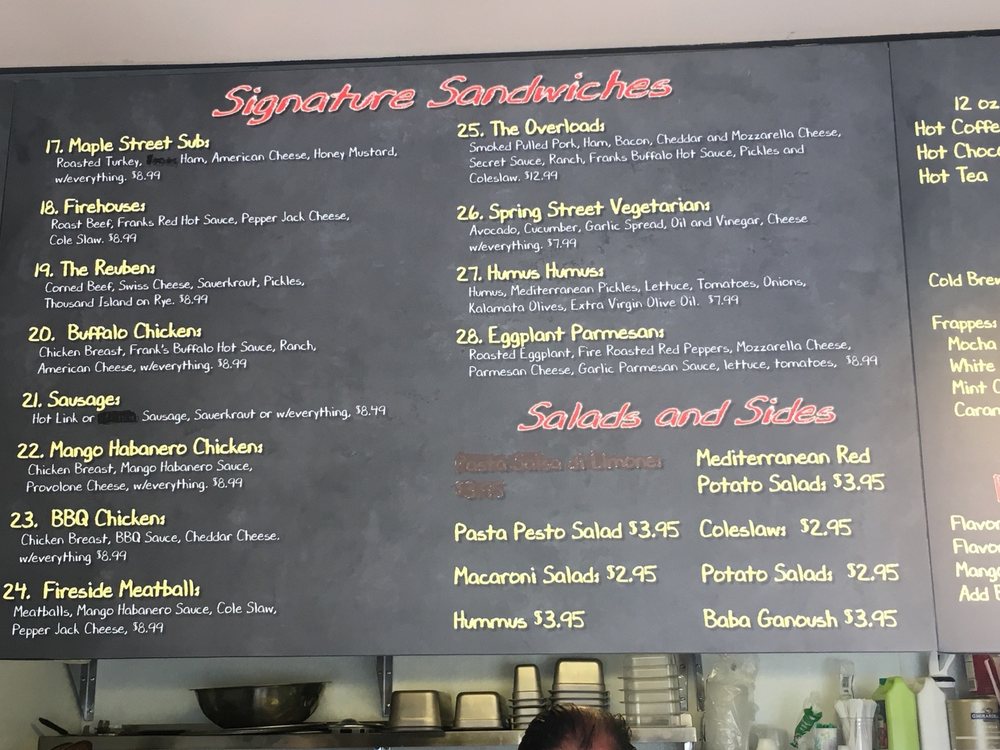 Signature Sandwiches
17. Maple Street Subs
Roasted Turkey, Ham, American Cheese, Honey Mustard,
w/everything. $8.99
18. Firehouses
Roast Beef, Franks Red Hot Sauce, Pepper Jack Cheese,
Cole Slaw. $8.99
19. The Reubens
Corned Beef, Swiss Cheese, Sauerkraut, Pickles,
Thousand Island on Rye. $8.99
20. Buffalo Chickens
Chicken Breast, Frank's Buffalo Hot Sauce, Ranch,
American Cheese, w/everything. $8.99
21. Sausages
Hot Link or Sausage, Sauerkraut or w/everything, $8.49
22. Mango Habanero Chickens
Chicken Breast, Mango Habanero Sauce,
Provolone Cheese, w/everything. $8.99
23. BBQ Chickens
Chicken Breast, BBQ Sauce, Cheddar Cheese.
w/everything $8.99
24. Fireside Meatballs
Meatballs, Mango Habanero Sauce, Cole Slaw,
Pepper Jack Cheese, $8.99
25. The Overloads
Smoked Pulled Pork, Ham, Bacon, Cheddar and Mozzarella Cheese,
Secret Sauce, Ranch, Franks Buffalo Hot Sauce, Pickles and
Coleslaw. $12.99
26. Spring Street Vegetarians
Avocado, Cucumber, Garlic Spread, Oil and Vinegar, Cheese
w/everything. $7.99
27. Humus Humuss
Humus, Mediterranean Pickles, Lettuce, Tomatoes, Onions,
Kalamata Olives, Extra Virgin Olive Oil. $7.99
28. Eggplant Parmesans
Roasted Eggplant, Fire Roasted Red Peppers, Mozzarella Cheese,
Parmesan Cheese, Garlic Parmesan Sauce, lettuce, tomatoes, $8.99
Salads and Sides
Mediterranean Red
Potato Salads $3.95
Pasta Pesto Salad $3.95
Coleslaws $2.95
Macaroni Salads $2.95
Potato Salads $2.95
Hummus $3.95
Baba Ganoush $3.95
12 oz
Hot Coffe
Hot Choc
Hot Tea
Cold Brew
Frappess
Mocha
White
Mint C
Caram
Flavor
Flavor
Mango
Add E